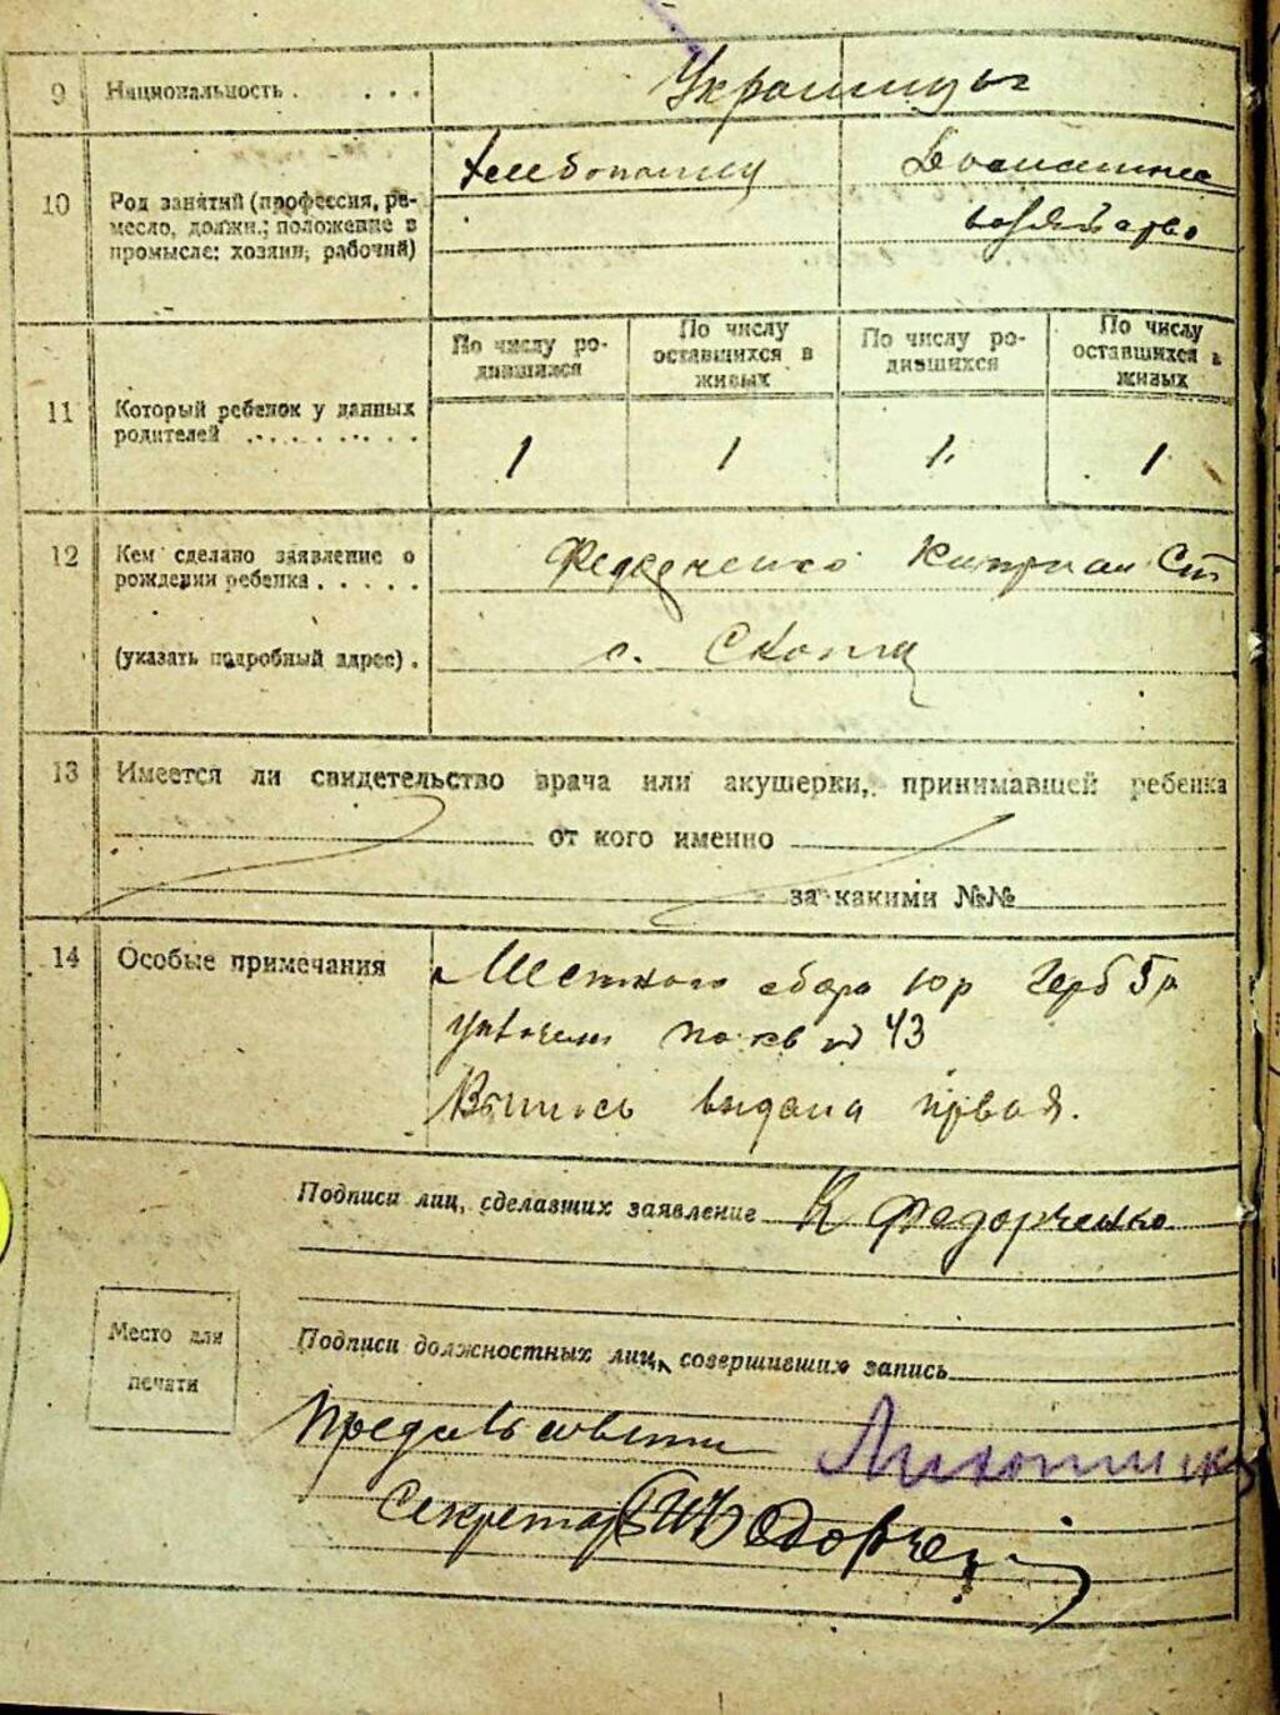 9 Национальность . . . . Украинцы
10 Род занятий (профессия, ре-
месло, должн.; положение в
промысле: хозяин, рабочий)
Хлебопашец
Домашнее
хозяйство
11 Который ребенок у данных
родителей
По числу ро-
дившихся
По числу
оставшихся в
живых
По числу ро-
дившихся
По числу
оставшихся в
живых
1 1 1. 1
12 Кем сделано заявление о
рождении ребенка . . . . .
(указать подробный адрес) .
Федорченко Киприан Ст
с. Скопцы
13 Имеется ли свидетельство врача или акушерки, принимавшей ребенка
от кого именно
за какими №№
14 Особые примечания
Местного сбора 10 р Герб 5 р
уплочены по кв № 43
Выпись выдана первая.
Подписи лиц, сделавших заявление К Федорченко
Место для
печати
Подписи должностных лиц, совершивших запись
Предсельсовета
Секретарь Федорченко